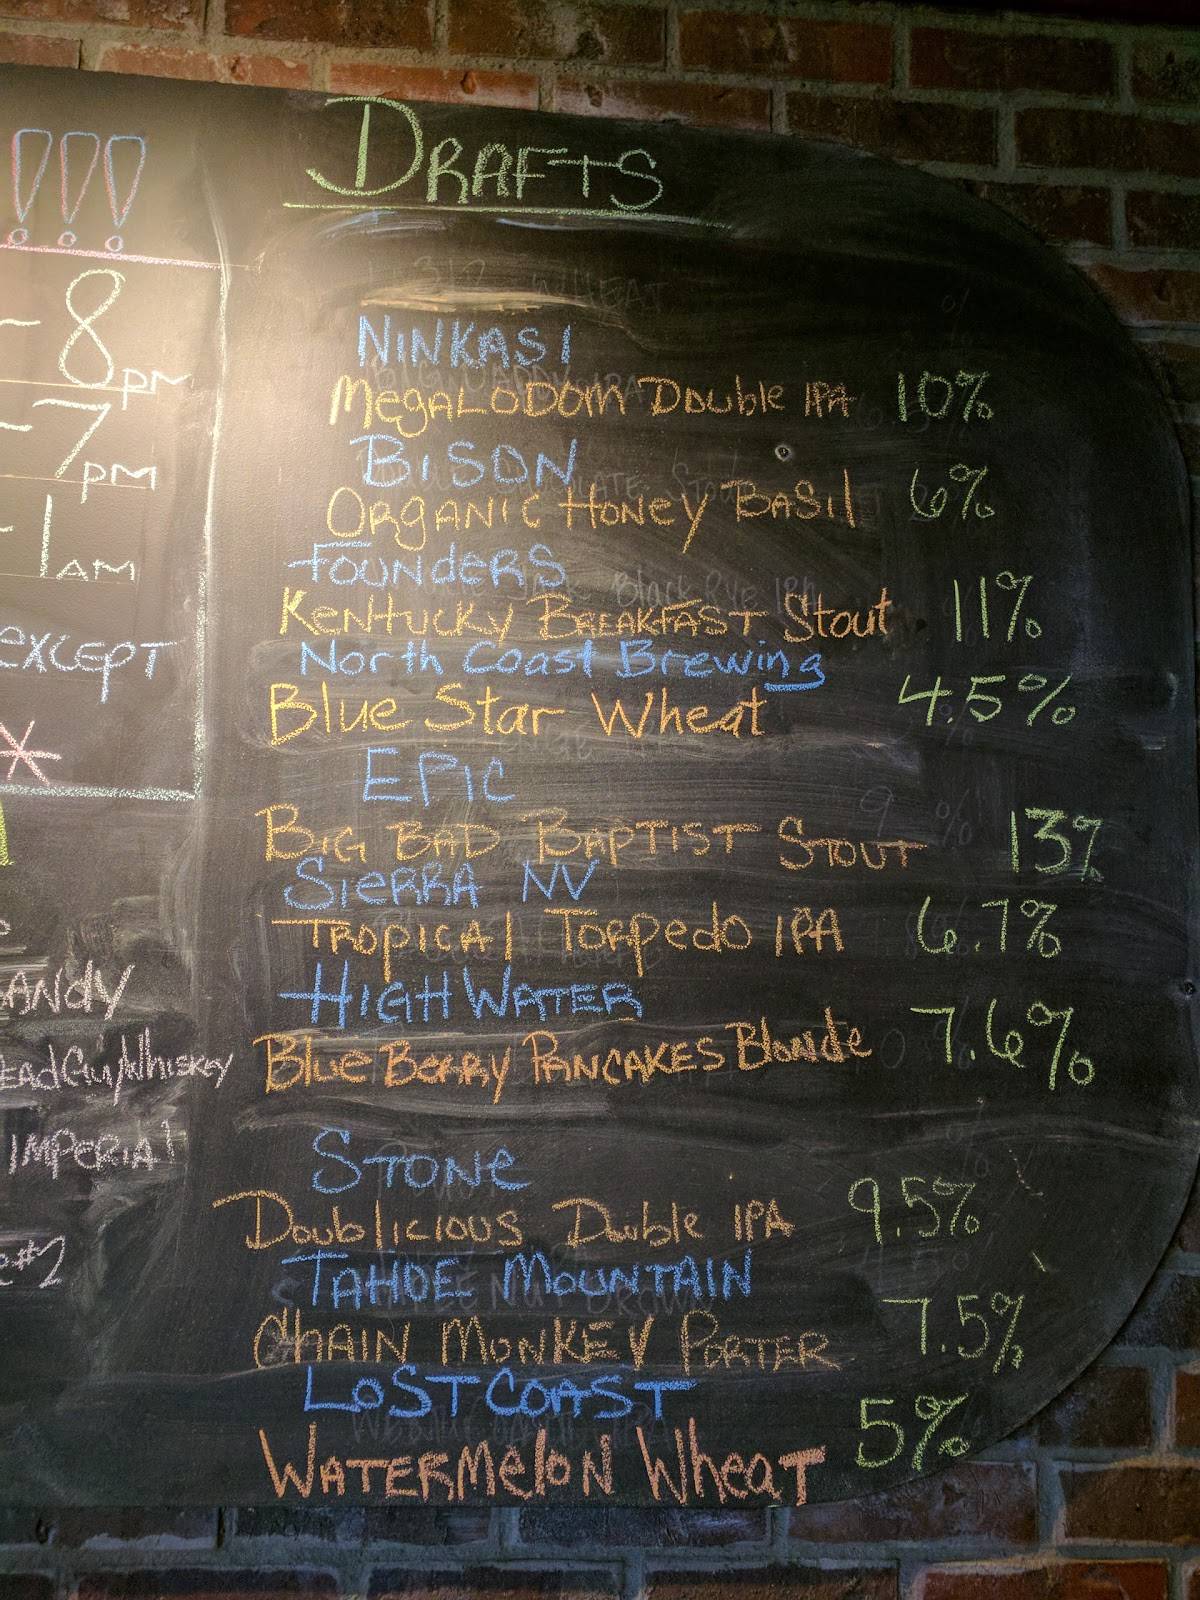 !!!
-8 PM
-7 PM
-1 AM
EXCEPT
*
ANDY
EADGUYWHISKEY
IMPERIAL
#2
DRAFTS
NINKASI
MEGALODOM DOUBLE IPA 10%
BISON
ORGANIC HONEY BASIL 6%
FOUNDERS
KENTUCKY BREAKFAST STOUT 11%
North Coast Brewing
Blue Star Wheat 4.5%
EPIC
BIG BAD BAPTIST STOUT 13%
SIERRA NV
TROPICAL TORPEDO IPA 6.7%
HIGH WATER
BLUEBERRY PANCAKES BLONDE 7.6%
STONE
DOUBLICIOUS DOUBLE IPA 9.5%
TAHOE MOUNTAIN
CHAIN MONKEY PORTER 7.5%
LOST COAST
WATERMELON WHEAT 5%